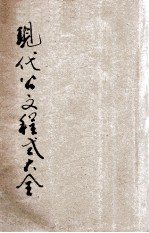 現代公文程式大全